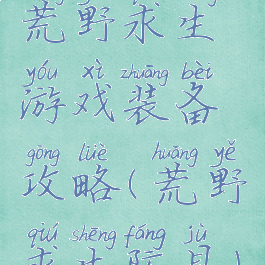 荒野求生
yóu xì zhuāng bèi
游戏装备
gōng lüè huāng yě
攻略(荒野
qiú shēng fáng jù
求生防具)